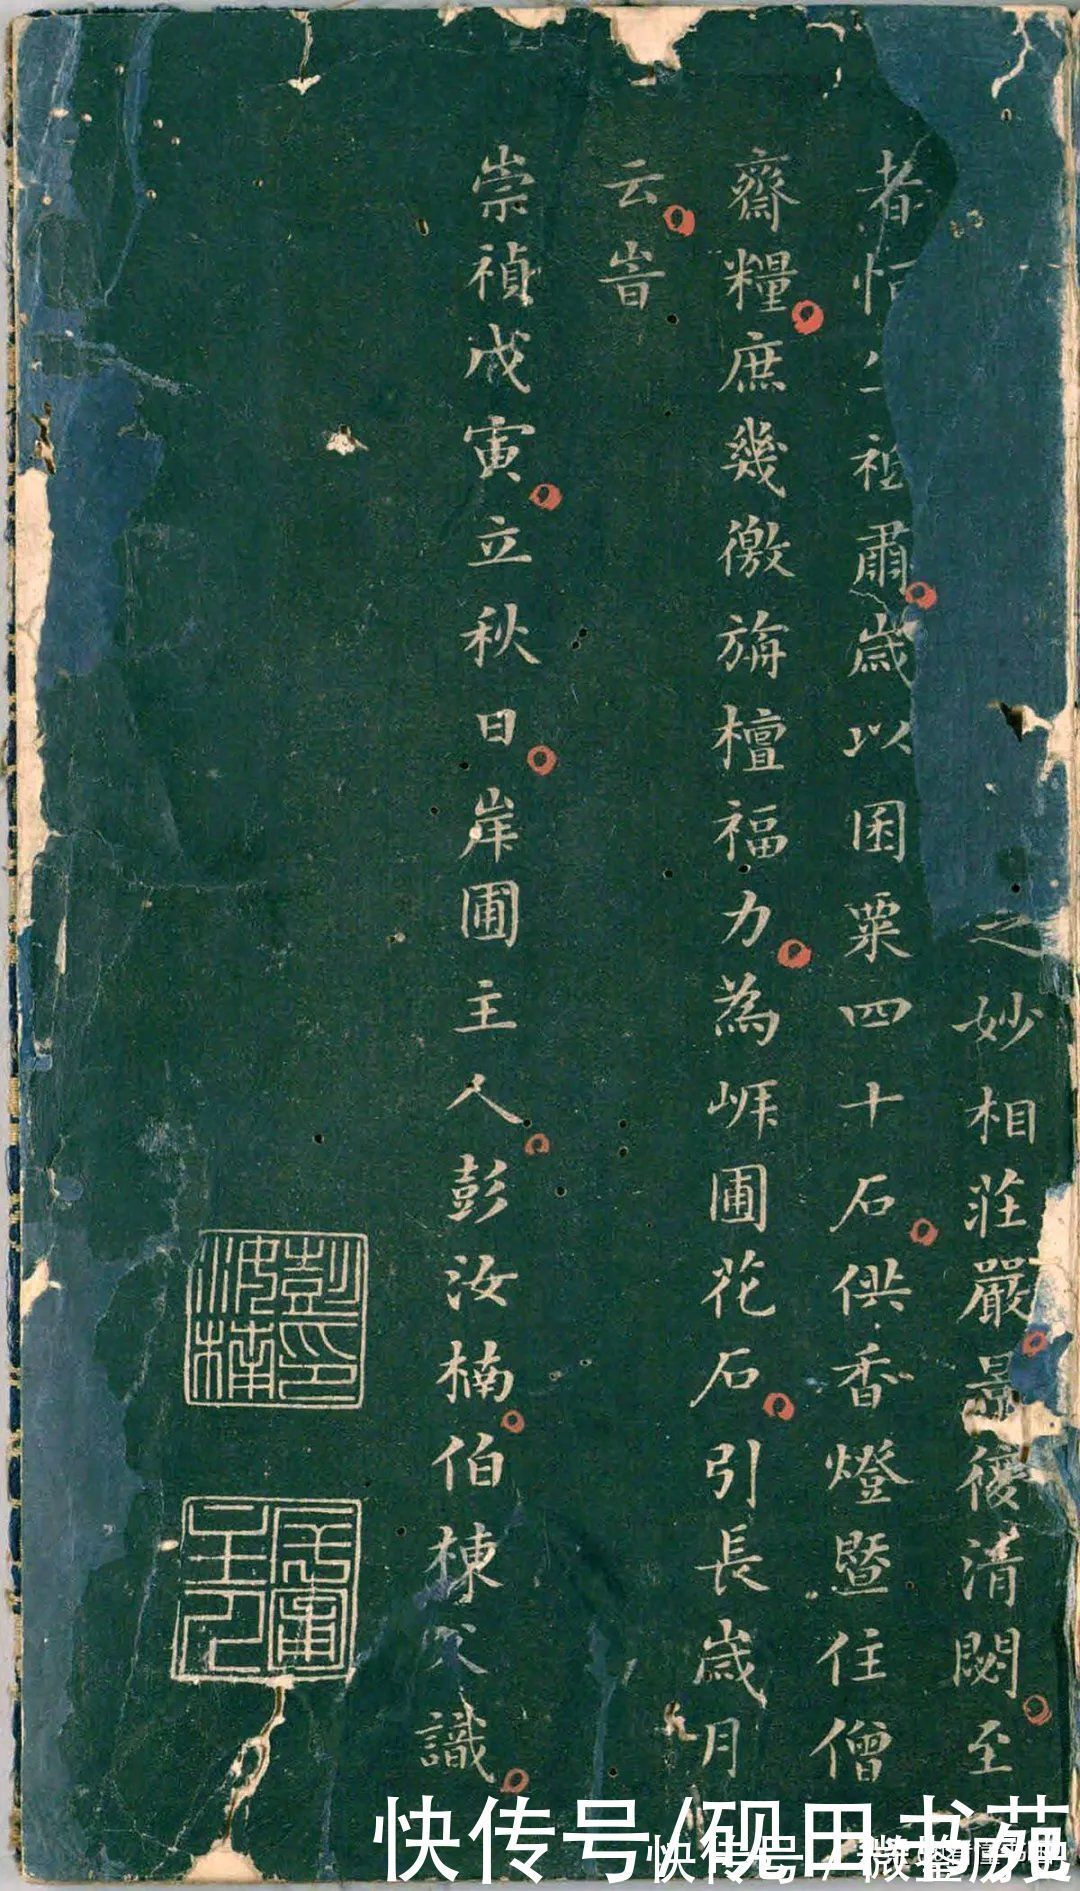 之妙相莊嚴景清閟至
者肅歲以囷粟四十石供香燈暨住僧
齋糧庶幾徼旃檀福力為岸圃花石引長歲月
云峕
崇禎戊寅立秋日岸圃主人彭汝楠伯棟父識
彭印汝楠
快传号/砚田书苑